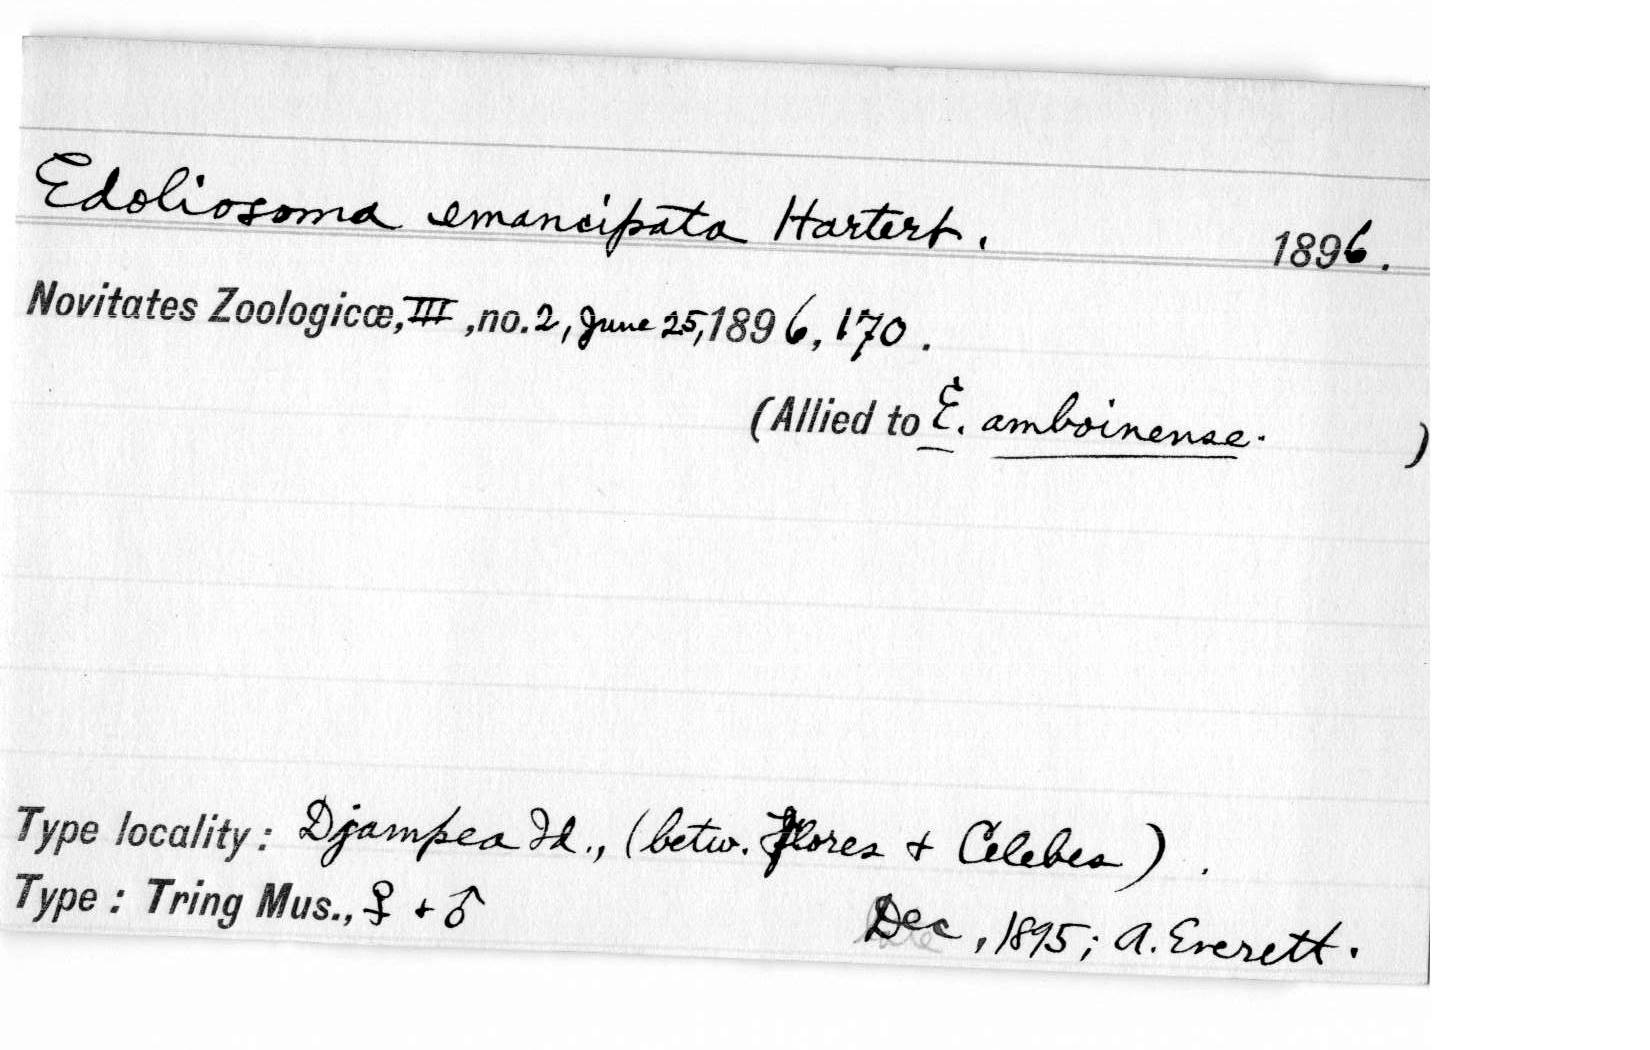 Edoliosoma emancipata Hartert. 1896.
Novitates Zoologicæ, III, no. 2, June 25, 1896, 170.
(Allied to E. amboinense. )
Type locality: Djampea Id., (betw. Flores + Celebes).
Type: Tring Mus., ♀ + ♂ Dec, 1895; A. Everett.